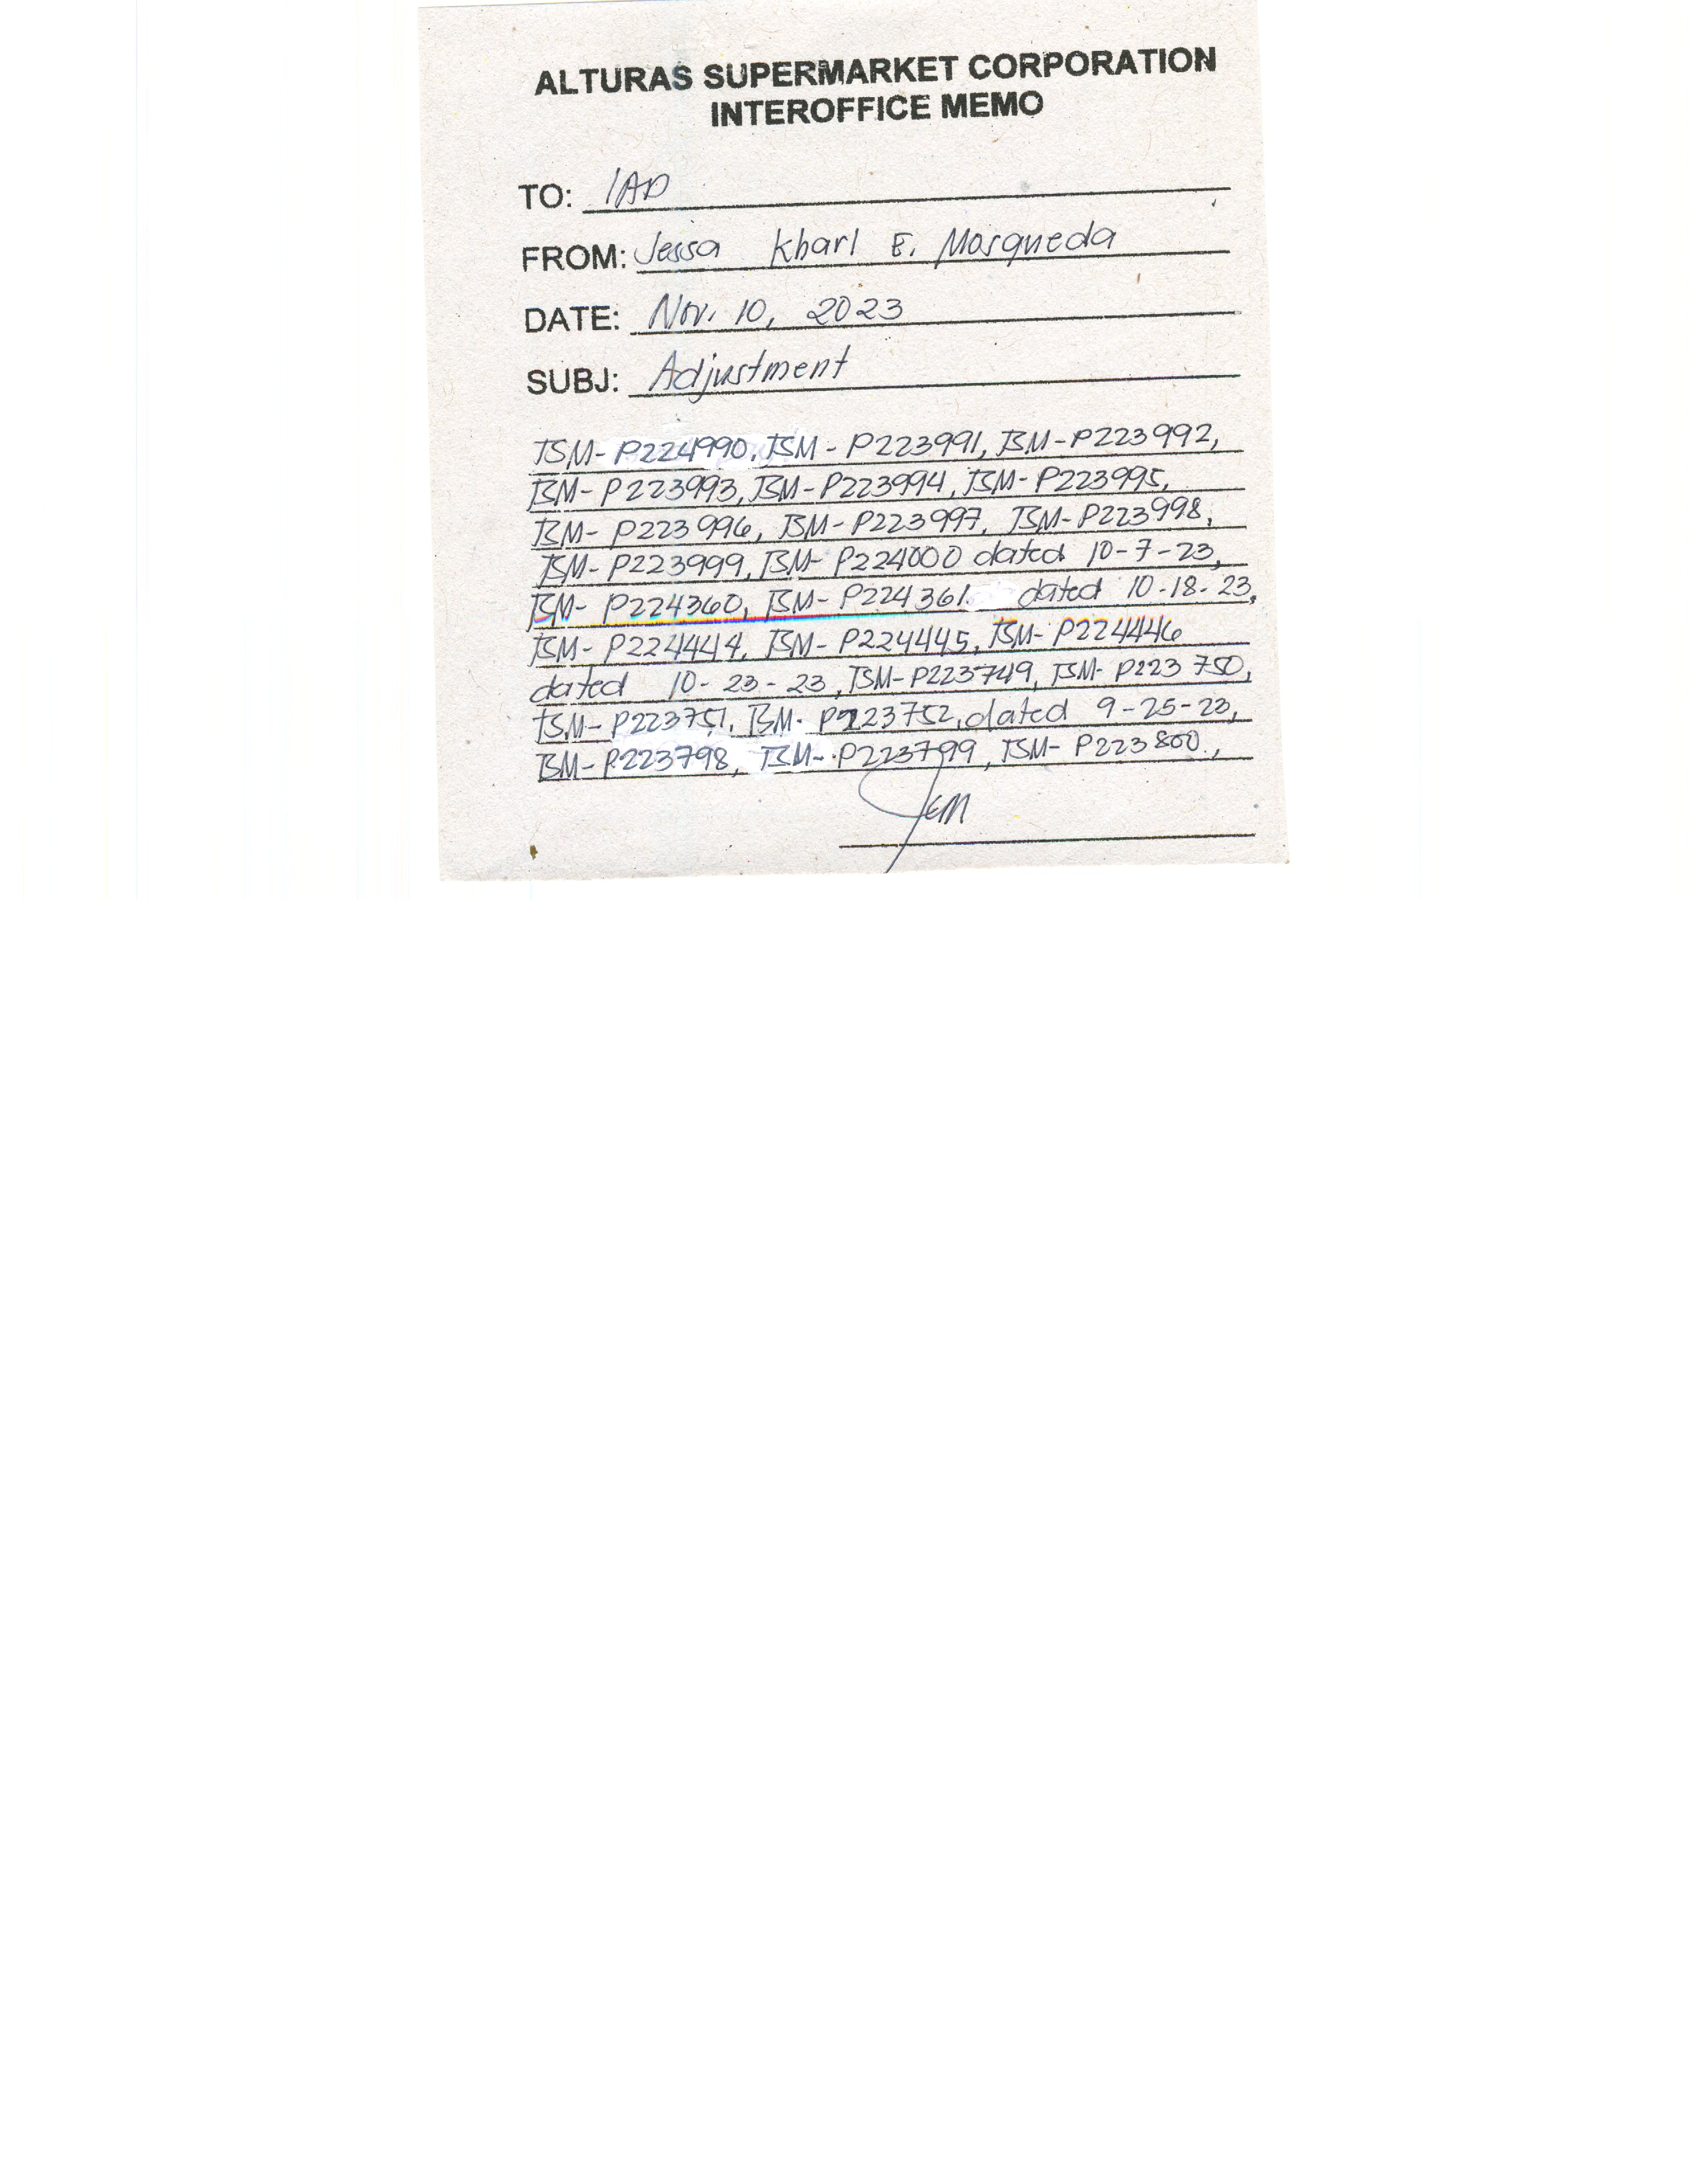 ALTURAS SUPERMARKET CORPORATION
INTEROFFICE MEMO
TO: IAD
FROM: Jessa Kharl E. Mosqueda
DATE: Nov. 10, 2023
SUBJ: Adjustment
TSM- P224990, TSM - P223991, TSM-P223992,
TSM- P223993, TSM-P223994, TSM-P223995,
TSM- P223996, TSM-P223997, TSM-P223998,
TSM- P223999, TSM- P224000 dated 10-7-23,
TSM- P224360, TSM- P224361 dated 10-18-23,
TSM- P224444, TSM- P224445, TSM- P224446
dated 10-23-23, TSM-P223749, TSM- P223750,
TSM- P223751, TSM- P223752, dated 9-25-23,
TSM- P223798, TSM- P223799, TSM- P223800,
JEM